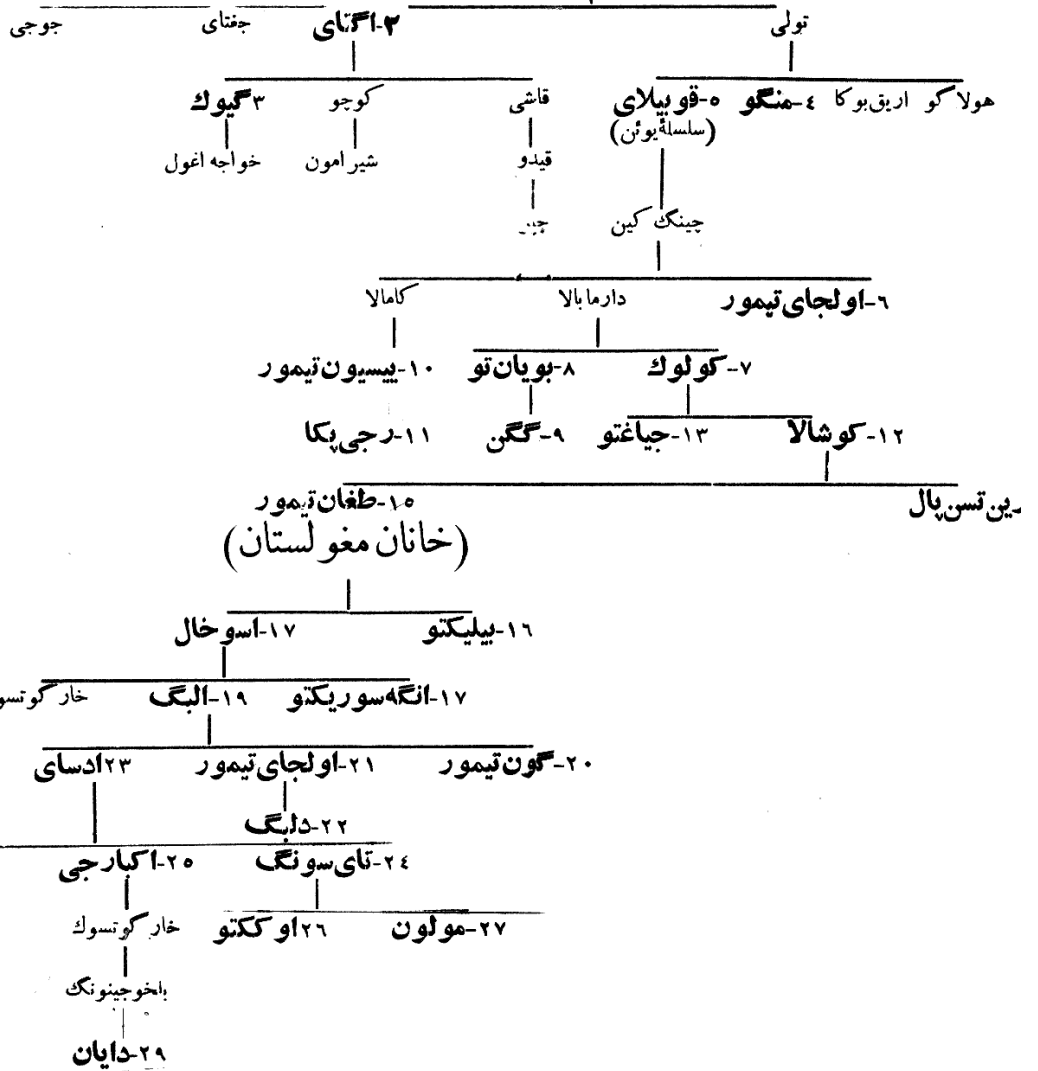 تولی ۲-اگتای جغتای جوجی
هولاکو اریق‌بوکا ۴-منگو ۵-قوبیلای قاشی کوچو ۳ گیوك
(سلسلهٔ یوئن)
قیدو شیرامون خواجه اغول
چینگ کین
۶-اولجای تیمور دارمابالا کامالا
۷-کولوك ۸-بویان‌تو ۱۰-ییسیون تیمور
۱۲-کوشالا ۱۳-جیاغتو ۹-گگن ۱۱-رجی‌پکا
رین تسن پال ۱۵-طغان تیمور
(خانان مغولستان)
۱۶-بیلیکتو ۱۷-اسوخال
۱۷-انگه‌سوریکتو ۱۹-البگ خارگوتسو
۲۰-گون تیمور ۲۱-اولجای تیمور ۲۳ ادسای
۲۲-دلبگ
۲۴-تای‌سونگ ۲۵-اکبارجی
۲۷-مولون ۲۶ اوککتو خارگوتسوك
باخوجینونگ
۲۹-دایان